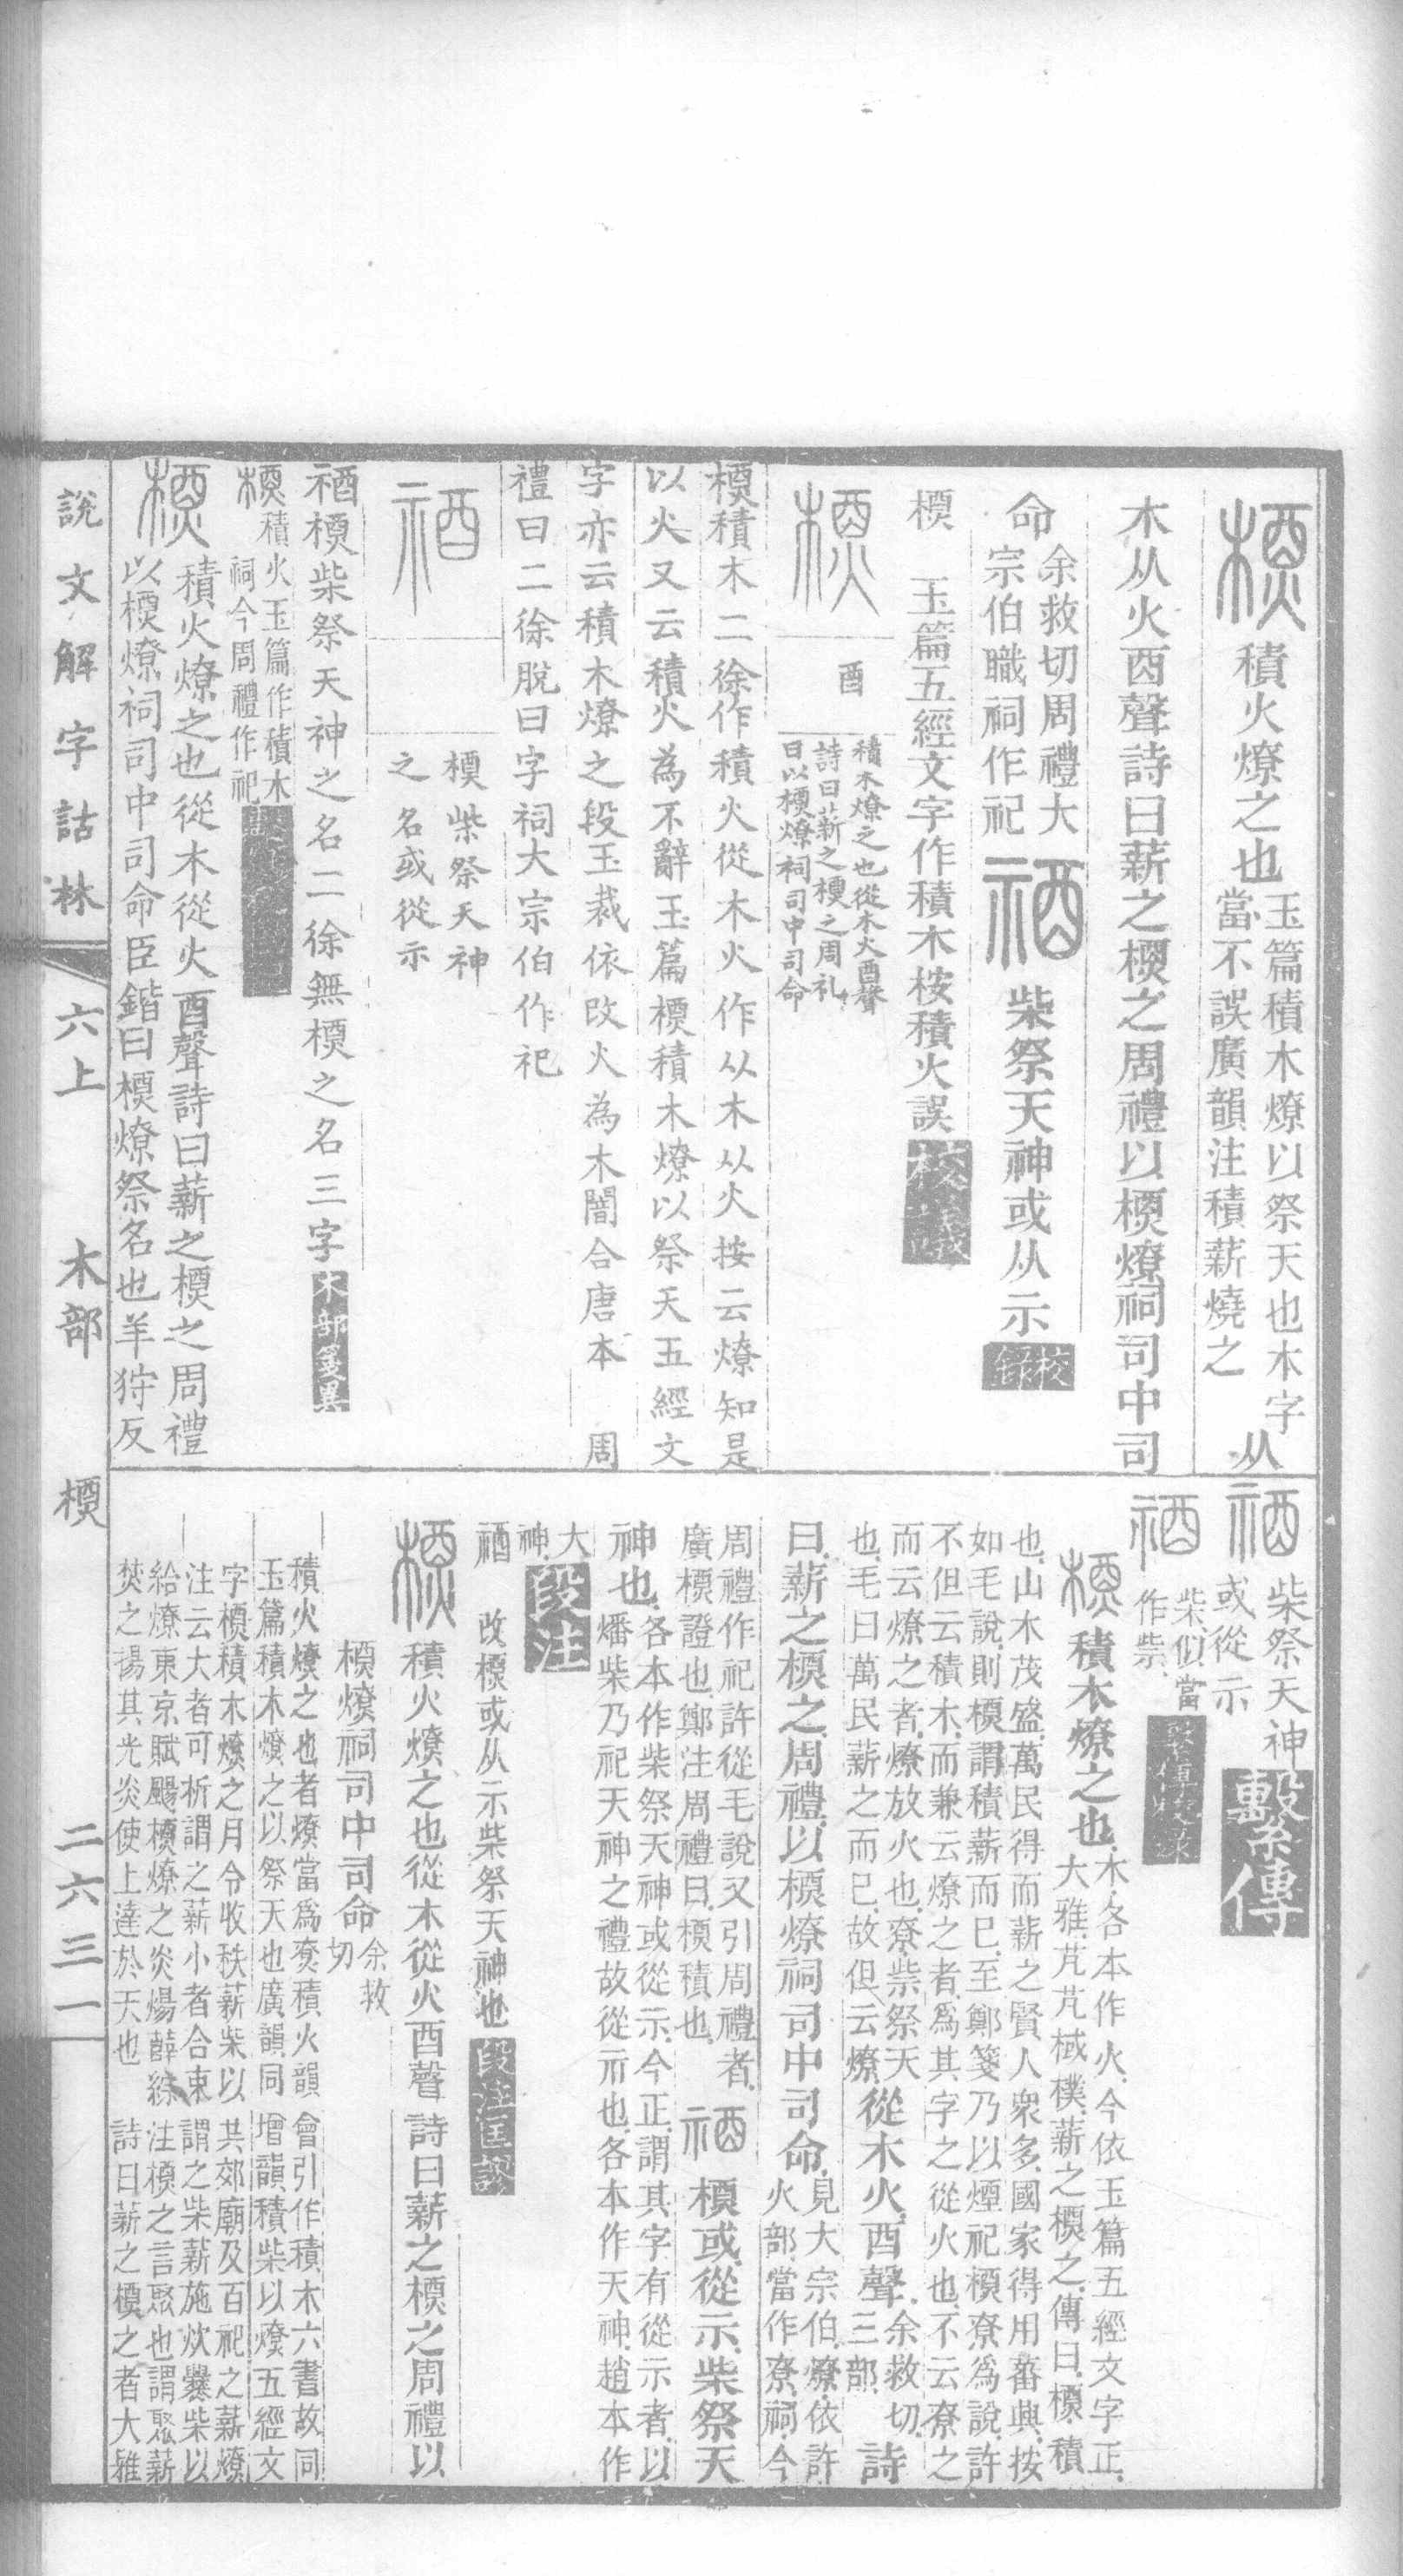 槱積火燎之也玉篇積木燎以祭天也木字
當不誤廣韻注積薪燒之从
木从火酉聲詩曰薪之槱之周禮以槱燎祠司中司
命余救切周禮大
宗伯職祠作祀
䄖柴祭天神或从示校録
槱 玉篇五經文字作積木桉積火誤校議
槱
酉
積木燎之也從木火酉聲
詩曰薪之槱之周礼
曰以槱燎祠司中司命
槱積木二徐作積火從木火作从木从火按云燎知是
以火又云積火為不辭玉篇槱積木燎以祭天五經文
字亦云積木燎之段玉裁依改火為木闇合唐本 周
禮曰二徐脫曰字祠大宗伯作祀
䄖
槱柴祭天神
之名或從示
䄖槱柴祭天神之名二徐無槱之名三字木部箋異
槱積火玉篇作積木
祠今周禮作祀
槱積火燎之也從木從火酉聲詩曰薪之槱之周禮
以槱燎祠司中司命臣鍇曰槱燎祭名也羊狩反
䄖柴祭天神
或從示繫傳
䄖柴佀當
作祡繫傳校录
槱積木燎之也木各本作火今依玉篇五經文字正
大雅芃芃棫樸薪之槱之傳曰槱積
也山木茂盛萬民得而薪之賢人衆多國家得用蕃興按
如毛說則槱謂積薪而已至鄭箋乃以煙祀槱尞爲說許
不但云積木而兼云燎之者爲其字之從火也不云尞之
而云燎之者燎放火也尞祡祭天
也毛曰萬民薪之而已故但云燎從木火酉聲余救切
三部詩
曰薪之槱之周禮以槱燎祠司中司命見大宗伯燎依許
火部當作尞祠今
周禮作祀許從毛說又引周禮者
廣槱證也鄭注周禮曰槱積也䄖槱或從示柴祭天
神也各本作柴祭天神或從示今正謂其字有從示者以
燔柴乃祀天神之禮故從示也各本作天神趙本作
大
神段注
䄖 改槱或从示柴祭天神也段注匡謬
槱積火燎之也從木從火酉聲詩曰薪之槱之周禮以
槱燎祠司中司命余救
切
積火燎之也者燎當爲尞積火韻會引作積木六書故同
玉篇積木燎之以祭天也廣韻同增韻積柴以燎五經文
字槱積木燎之月令收秩薪柴以共郊廟及百祀之薪燎
注云大者可析謂之薪小者合束謂之柴薪施炊爨柴以
給燎東京賦颺槱燎之炎煬薛綜注槱之言聚也謂聚薪
焚之揚其光炎使上達於天也詩曰薪之槱之者大雅
說文解字詁林 六上 木部 槱 二六三一